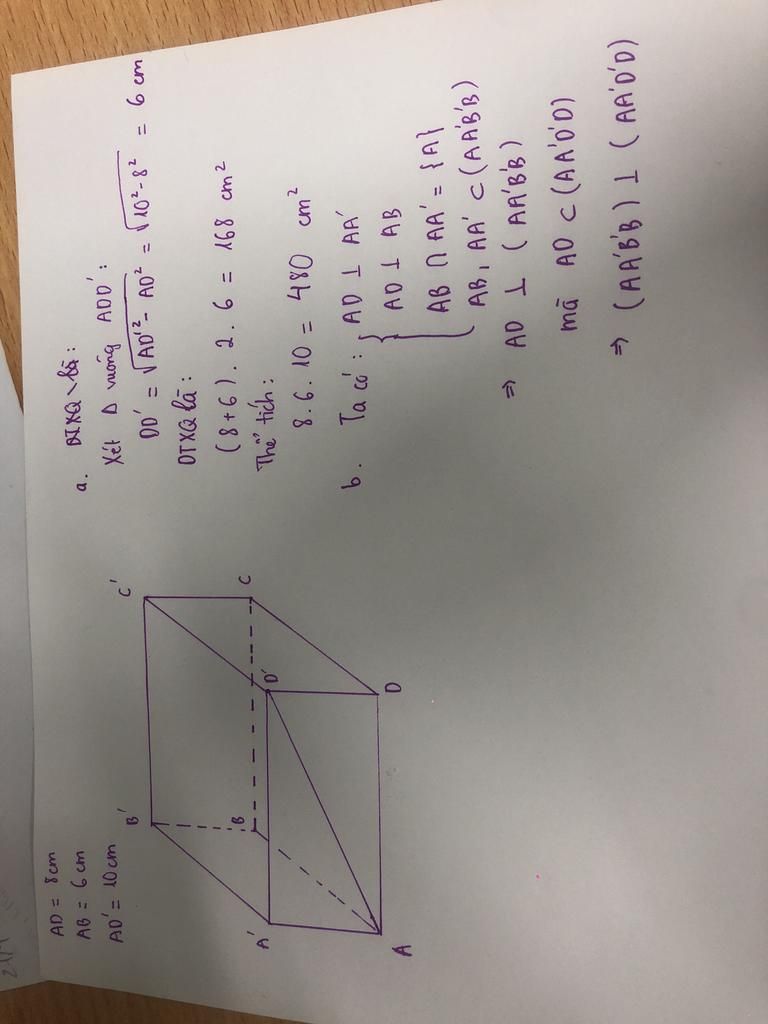 AD = 8cm
AB = 6cm
AD' = 10cm
B'
C'
B
C
A'
D'
A
D
a. DTXQ là:
Xét Δ vuông ADD':
DD' = √AD'² - AD² = √10² - 8² = 6 cm
DTXQ là:
(8+6). 2. 6 = 168 cm²
Thể tích:
8. 6. 10 = 480 cm²
b. Ta có: { AD ⊥ AA'
AD ⊥ AB
AB ∩ AA' = {A}
AB, AA' ⊂ (AA'B'B)
⇒ AD ⊥ (AA'B'B)
mà AD ⊂ (AA'D'D)
⇒ (AA'B'B) ⊥ (AA'D'D)